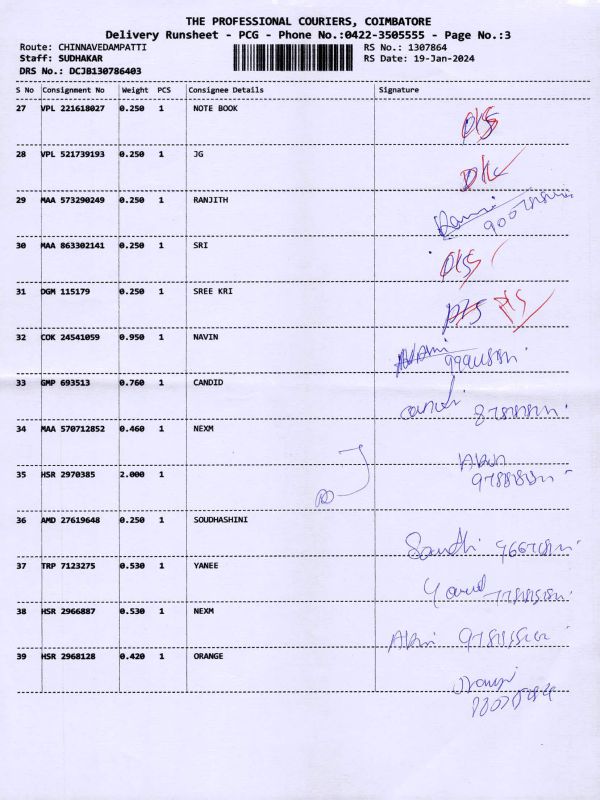 THE PROFESSIONAL COURIERS, COIMBATORE
Delivery Runsheet - PCG - Phone No.:0422-3505555 - Page No.:3
Route: CHINNAVEDAMPATTI RS No.: 1307864
Staff: SUDHAKAR RS Date: 19-Jan-2024
DRS No.: DCJB130786403
S No Consignment No Weight PCS Consignee Details Signature
27 VPL 221618027 0.250 1 NOTE BOOK
28 VPL 521739193 0.250 1 JG
29 MAA 573290249 0.250 1 RANJITH
30 MAA 863302141 0.250 1 SRI
31 DGM 115179 0.250 1 SREE KRI
32 COK 24541059 0.950 1 NAVIN
33 GMP 693513 0.760 1 CANDID
34 MAA 570712852 0.460 1 NEXM
35 HSR 2970385 2.000 1
36 AMD 27619648 0.250 1 SOUDHASHINI
37 TRP 7123275 0.530 1 YANEE
38 HSR 2966887 0.530 1 NEXM
39 HSR 2968128 0.420 1 ORANGE